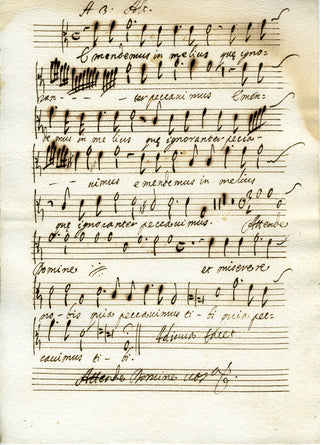 A 3. Alt.
Emendemus in melius quę igno-
ran - - - - ter peccavimus Emen-
demus in melius quę ignoranter pecca-
- - vimus emendemus in melius
quę ignoranter peccavimus. Attende
Domine et miserere
no-bis quia peccavimus ti-bi quia pec-
cavimus ti-bi. Adiuva tacet
Attende Domine